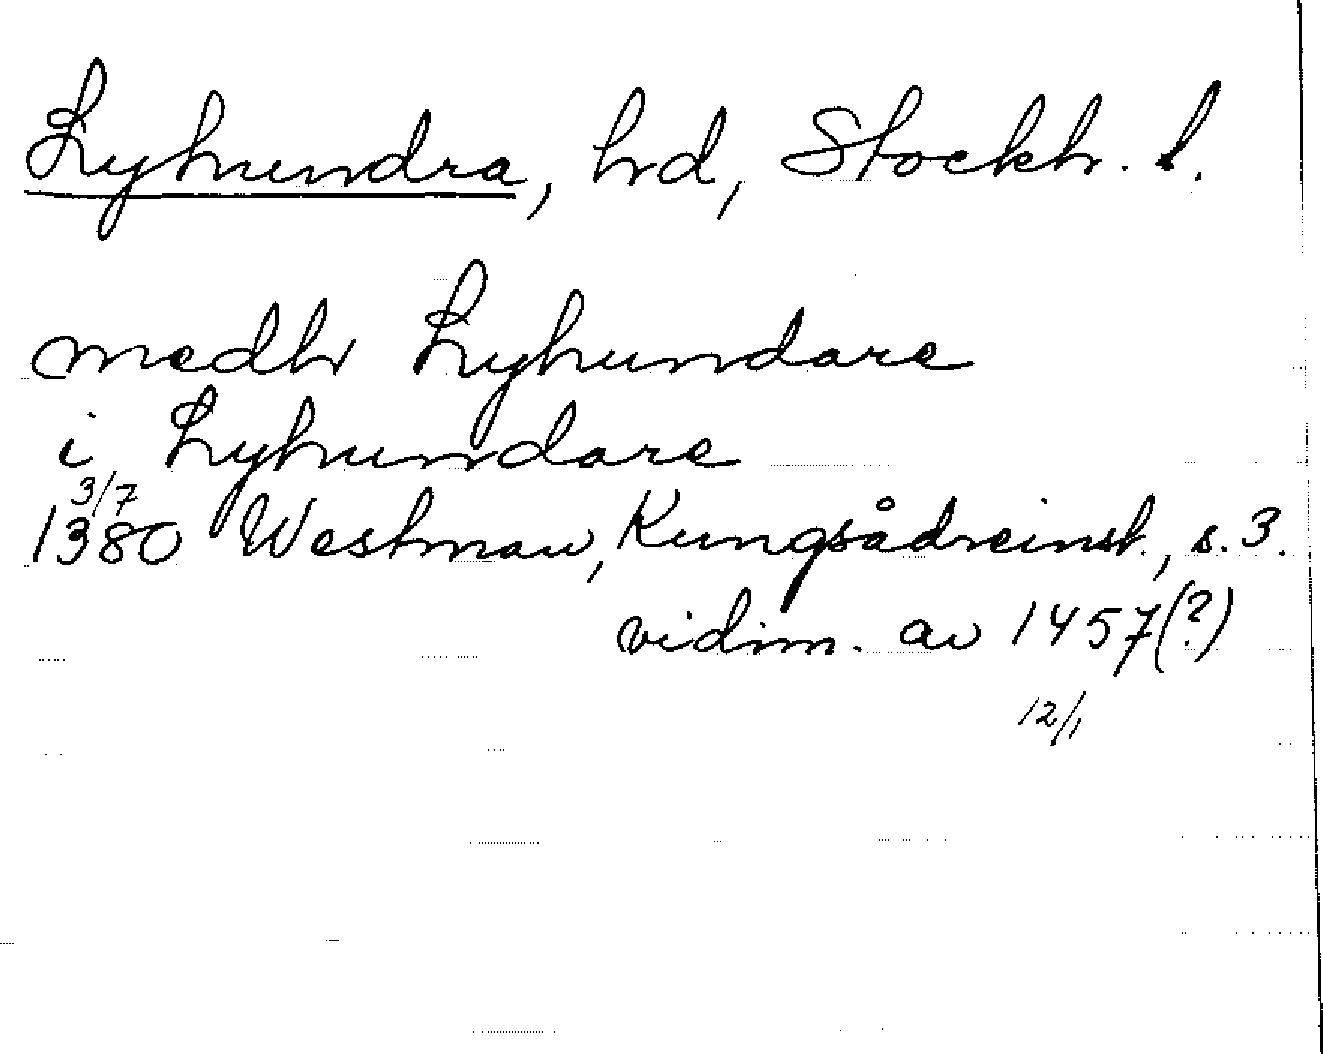 Lyhundra, hd, Stockh. l.
medh Lyhundare
i Lyhundare
3/7
1380 Westman, Kungsådreinst., s. 3.
vidim. av 1457(?)
12/1